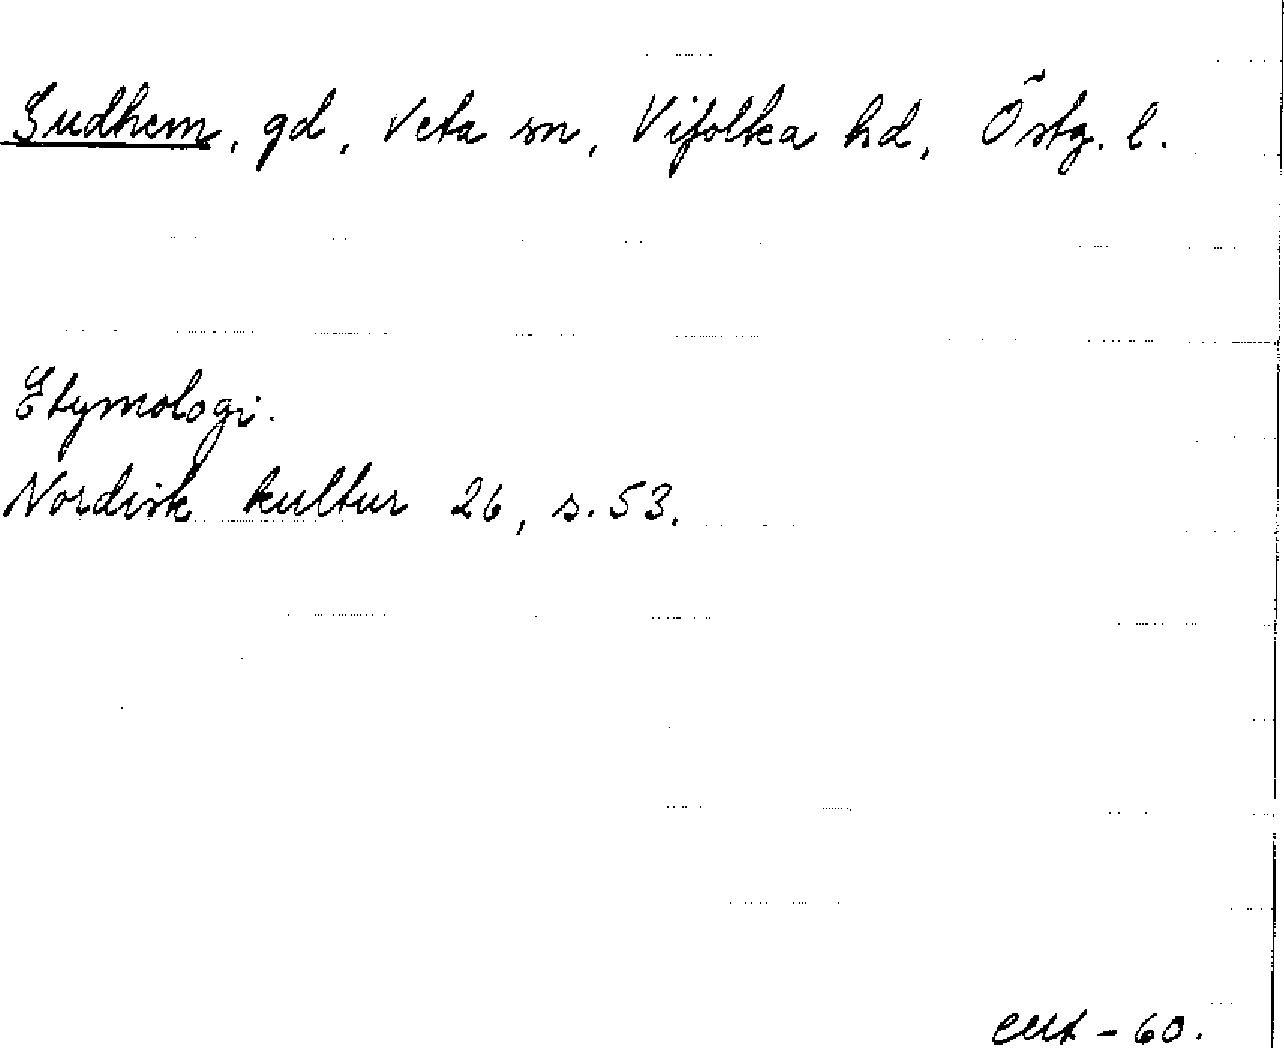 Sudhem, gd, Veta sn, Vifolka hd, Östg. l.
Etymologi.
Nordisk kultur 26, s. 53.
- 60.